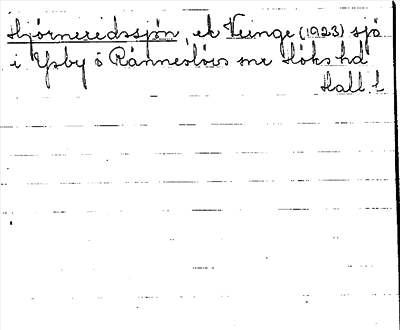 Hjörneredssjön, ek Veinge (1923) sjö
i Ysby o Ränneslövs snr Höks hd
Hall. l